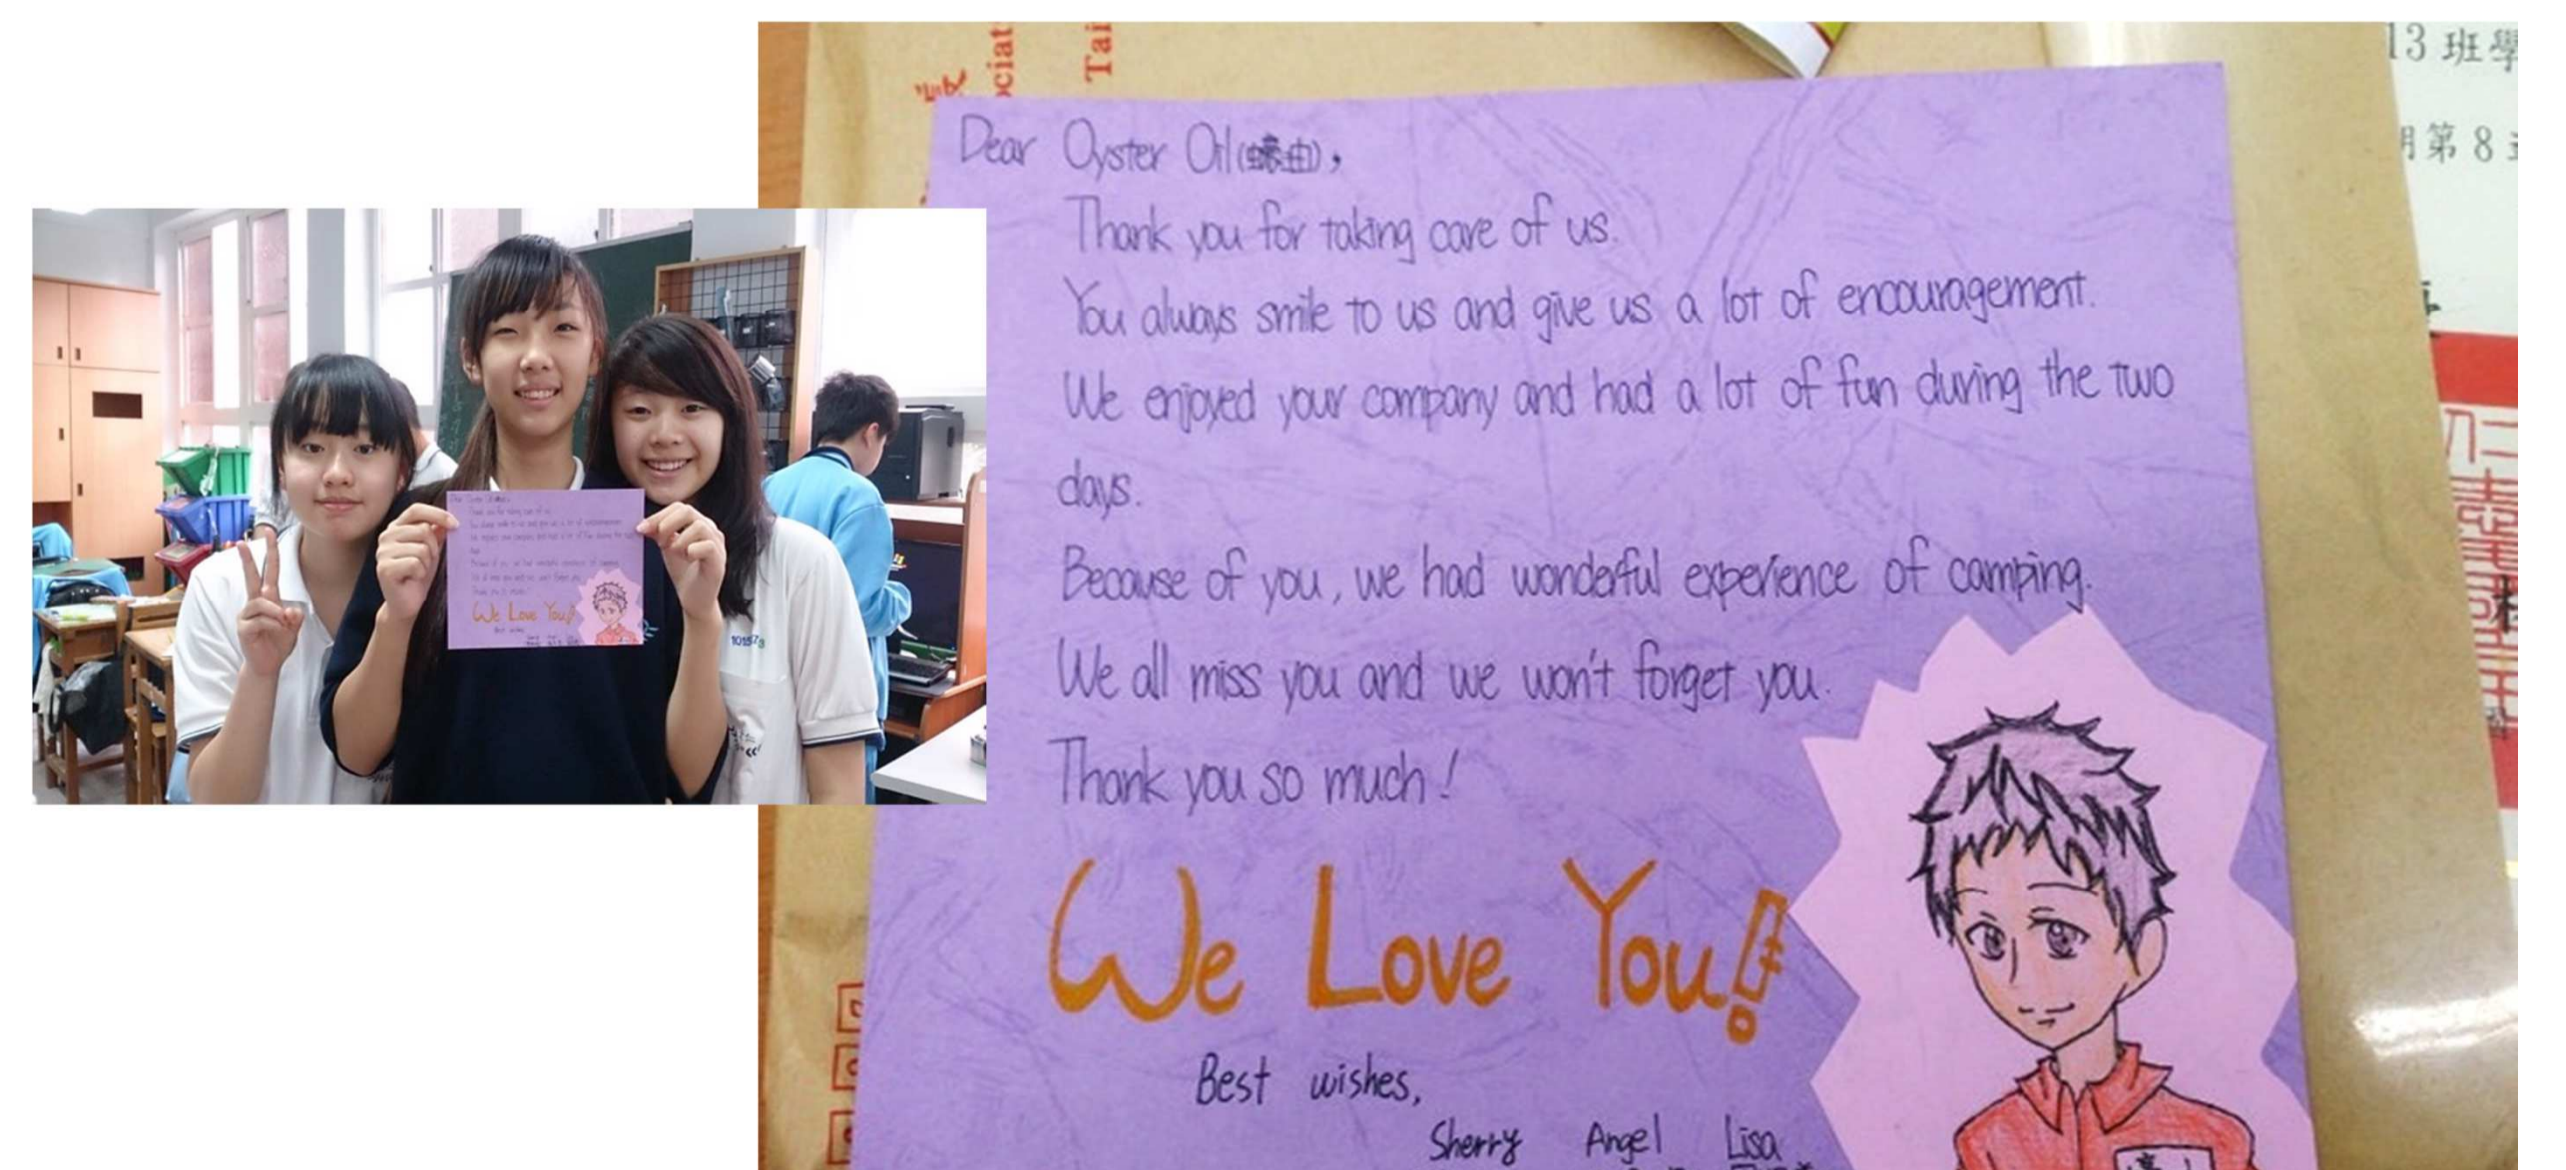 Dear Oyster Oil(蠔油),
Thank you for taking care of us.
You always smile to us and give us a lot of encouragement.
We enjoyed your company and had a lot of fun during the two
days.
Because of you, we had wonderful experience of camping.
We all miss you and we won't forget you.
Thank you so much!
We Love You!
Best wishes,
Sherry Angel Lisa
ociat
Tai
13 班學
期第 8